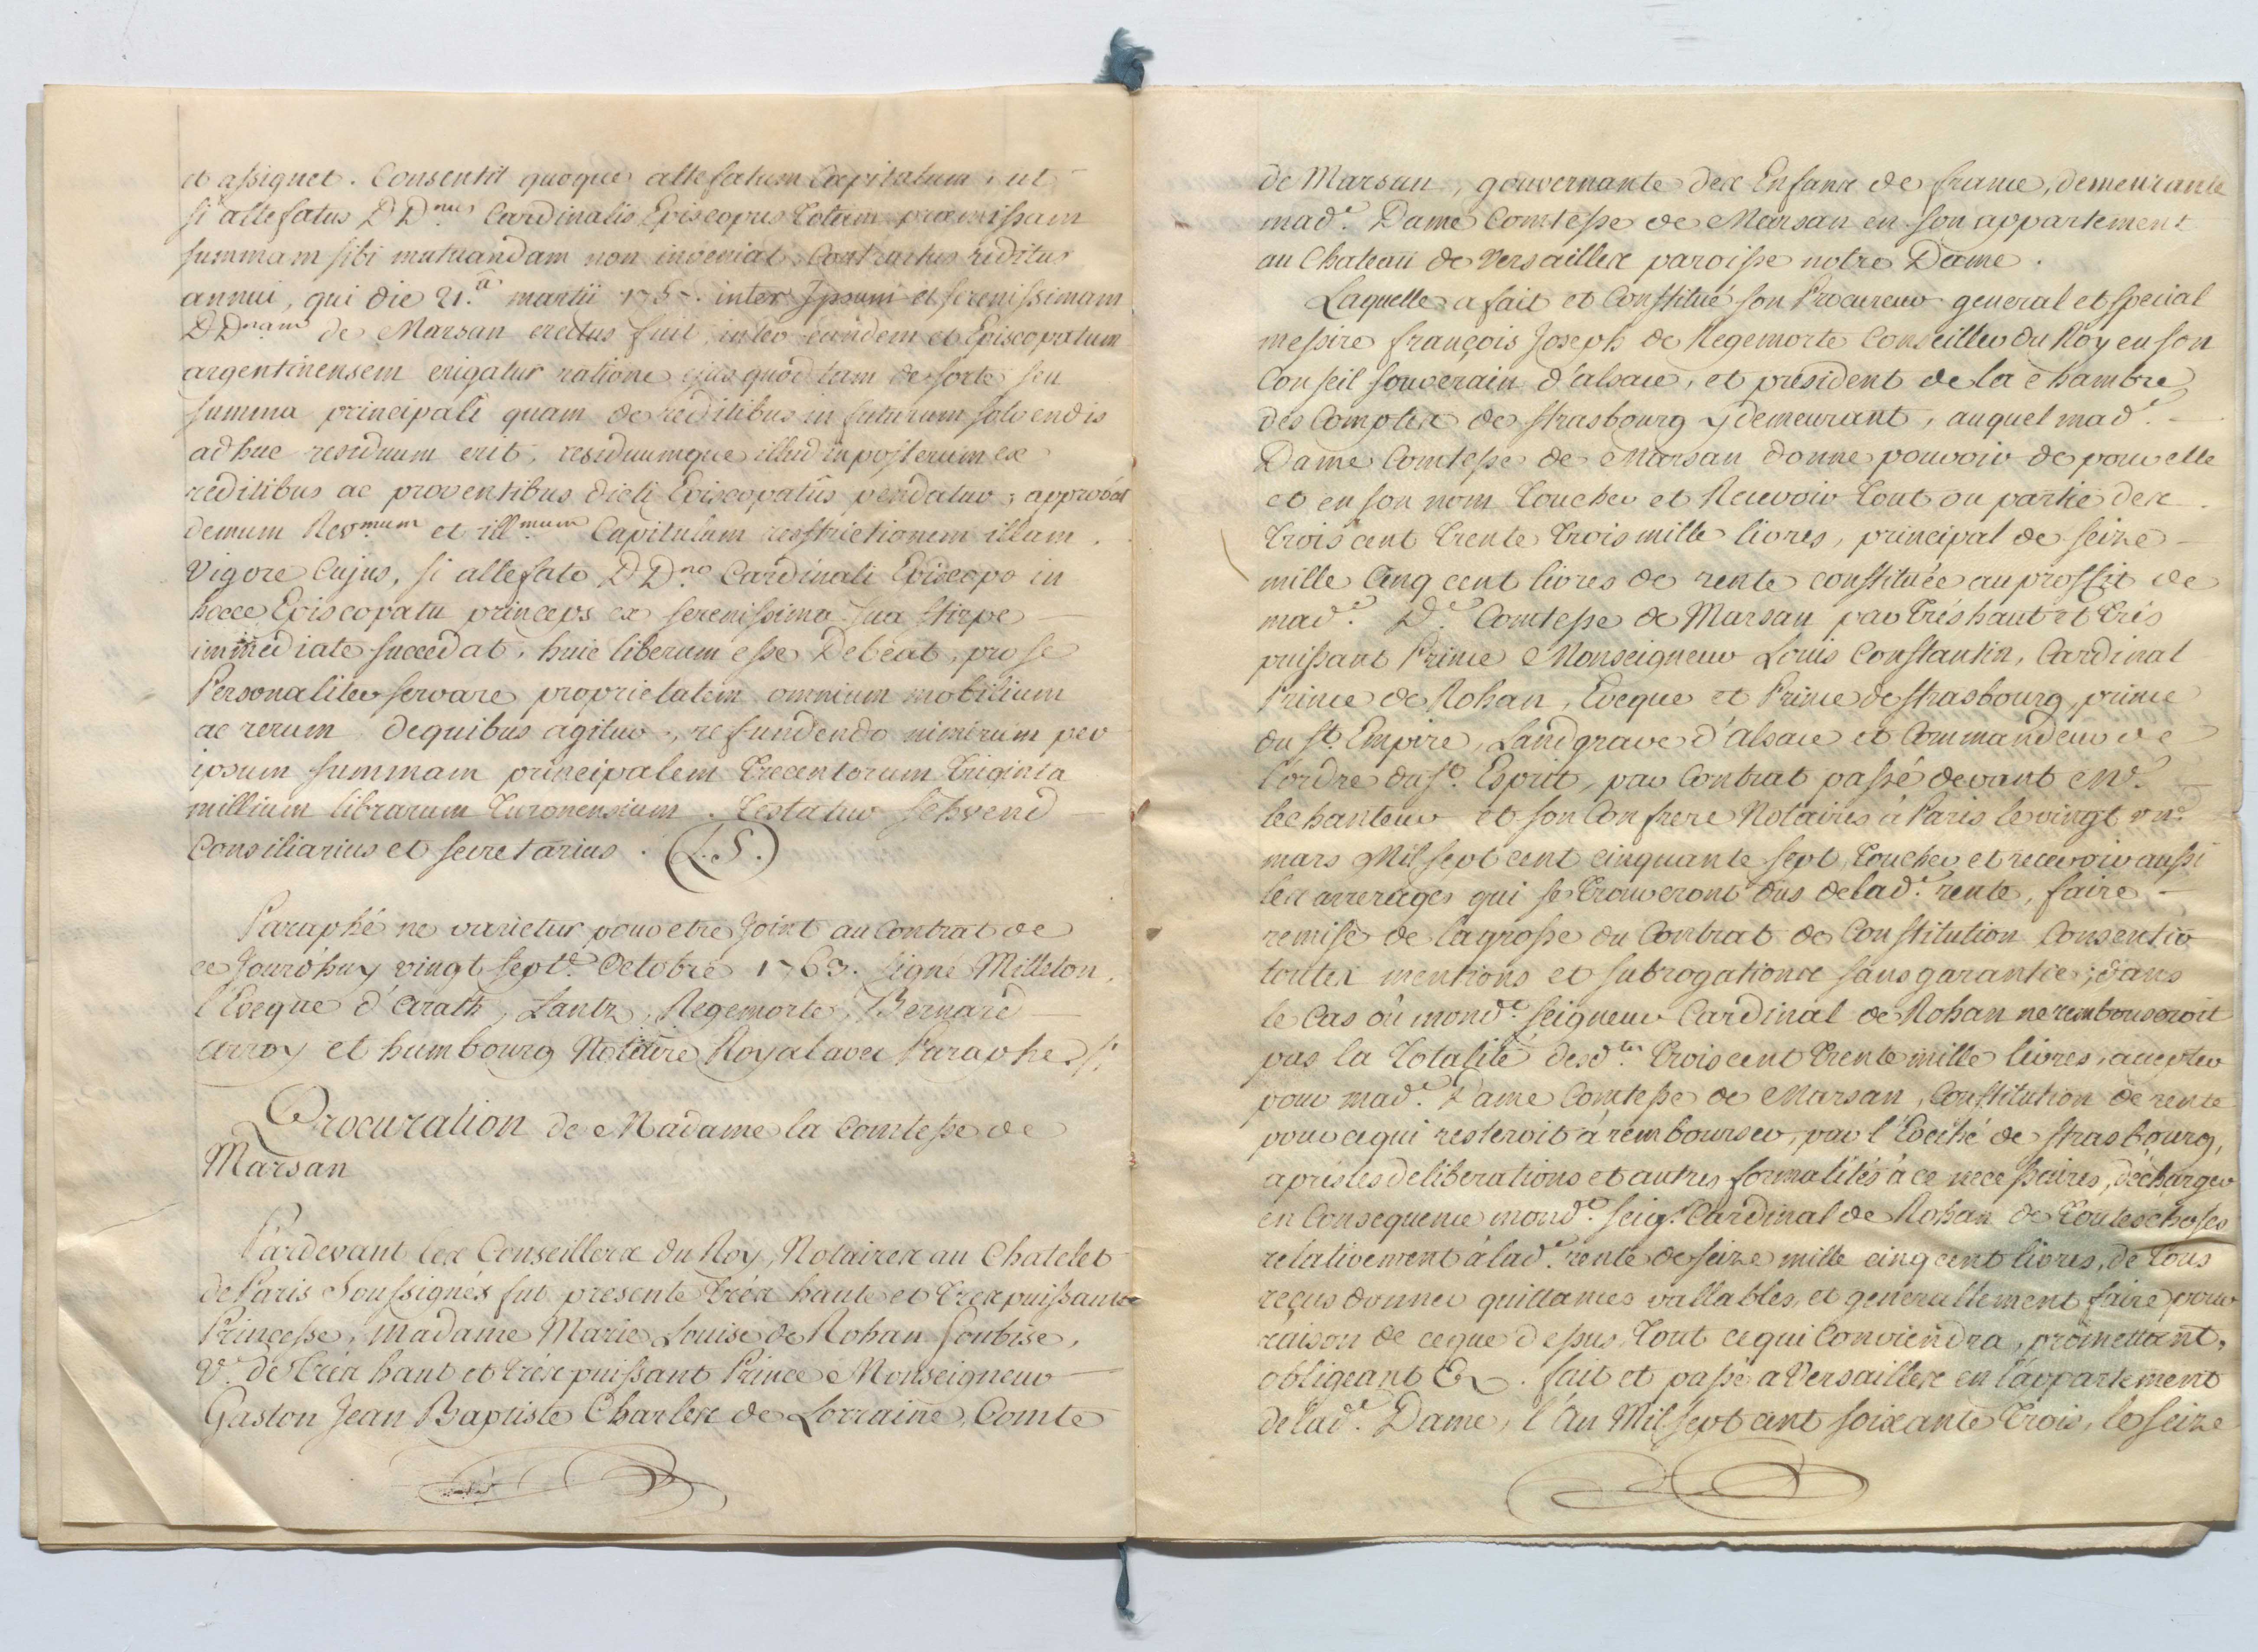 et assignet. Consentit quoque altefatum Capitulum, ut
si altefatus D D.nus Cardinalis Episcopus Totam præmissam
summam sibi mutuandam non inveniat, Contractus reditus
annui, qui die 21.a martii 1757. inter Ipsum et serenissimam
D D.nam de Marsan erectus fuit, inter eundem et Episcopatum
argentinensem erigatur ratione ejus quod tam de sorte seu
summa principali quam de reditibus in futurum solvendis
adhuc residuum erit, residuumque illud inposterum ex
reditibus ac proventibus dicti Episcopatûs pendatur; approbat
demum Rev.mum et ill.mum Capitulum restrictionem illam
Vigore Cujus, si altefato D D.no Cardinali Episcopo in
hocce Episcopatu princeps ex serenissima sua stirpe
immediate succedat, huic liberum esse Debeat, pro se
Personaliter servare proprietatem omnium mobilium
ac rerum dequibus agitur, refundendo nimirum per
ipsum summam principalem Trecentorum Triginta
millium librarum Turonensium. Testatur Schvend
Consiliarius et secretarius. (L.S.)
Paraphé ne varietur pour etre Joint au Contrat de
ce Jourd'huy vingt sept.e Octobre 1763. signé Milleton,
l'Eveque d'arath, Lantz, Regemorte, Bernard
arroy et humbourg Notaire Royal avec Paraphe./.
Procuration de Madame la Comtesse de
Marsan
Pardevant les Conseillers du Roy, Notaires au Chatelet
de Paris Soussignés fut presente très haute et très puissante
Princesse, Madame Marie Louise de Rohan Soubise,
V.e de très haut et très puissant Prince Monseigneur
Gaston Jean Baptiste Charles de Lorraine, Comte
de Marsan, gouvernante des Enfans de france, demeurante
mad.e Dame Comtesse de Marsan en son appartement
au Chateau de Versailles paroisse notre Dame.
Laquelle a fait et Constitué son Procureur general et special
messire françois Joseph de Regemorte Conseiller du Roy en son
Conseil souverain d'alsace, et président de la Chambre
des Comptes de strasbourg y demeurant, auquel mad.e
Dame Comtesse de Marsan donne pouvoir de pour elle
et en son nom Toucher et Recevoir Tout ou partie des
Trois cent Trente Trois mille livres, principal de seize
mille Cinq cent livres de rente constituée au proffit de
mad.e D.e Comtesse de Marsan par Très haut et Très
puissant Prince Monseigneur Louis Constantin, Cardinal
Prince de Rohan, Eveque et Prince de strasbourg, prince
du s.t Empire, Landgrave d'alsace et Commandeur de
l'ordre du s.t Esprit, par Contrat passé devant M.e
lechanteur et son Confrere Notaires à Paris le vingt un
mars Mil sept cent cinquante sept, Toucher et recevoir aussi
les arrerages qui se Trouveront dus de lad.e rente, faire
remise de lagrosse du Contrat de Constitution Consentir
toutes mentions et subrogations sans garantie; dans
le Cas où mond.t seigneur Cardinal de Rohan ne rembourseroit
pas la Totalité desd.tes Trois cent Trente mille livres, accepter
pour mad.e Dame Comtesse de Marsan, Constitution de rente
pour cequi resteroit à rembourser, par l'Evêché de strasbourg,
après les deliberations et autres formalités à ce necessaires, décharger
en Consequence mond.t seig.r Cardinal de Rohan de Toutes choses
relativement à lad.e rente de seize mille cinq cent livres, de Tous
reçus donner quittances vallables, et generallement faire pour
raison de ceque dessus, Tout ce qui Conviendra, promettant,
obligeant &c. fait et passé a Versailles en l'appartement
de lad.e Dame, l'an Mil sept cent soixante Trois, le seize